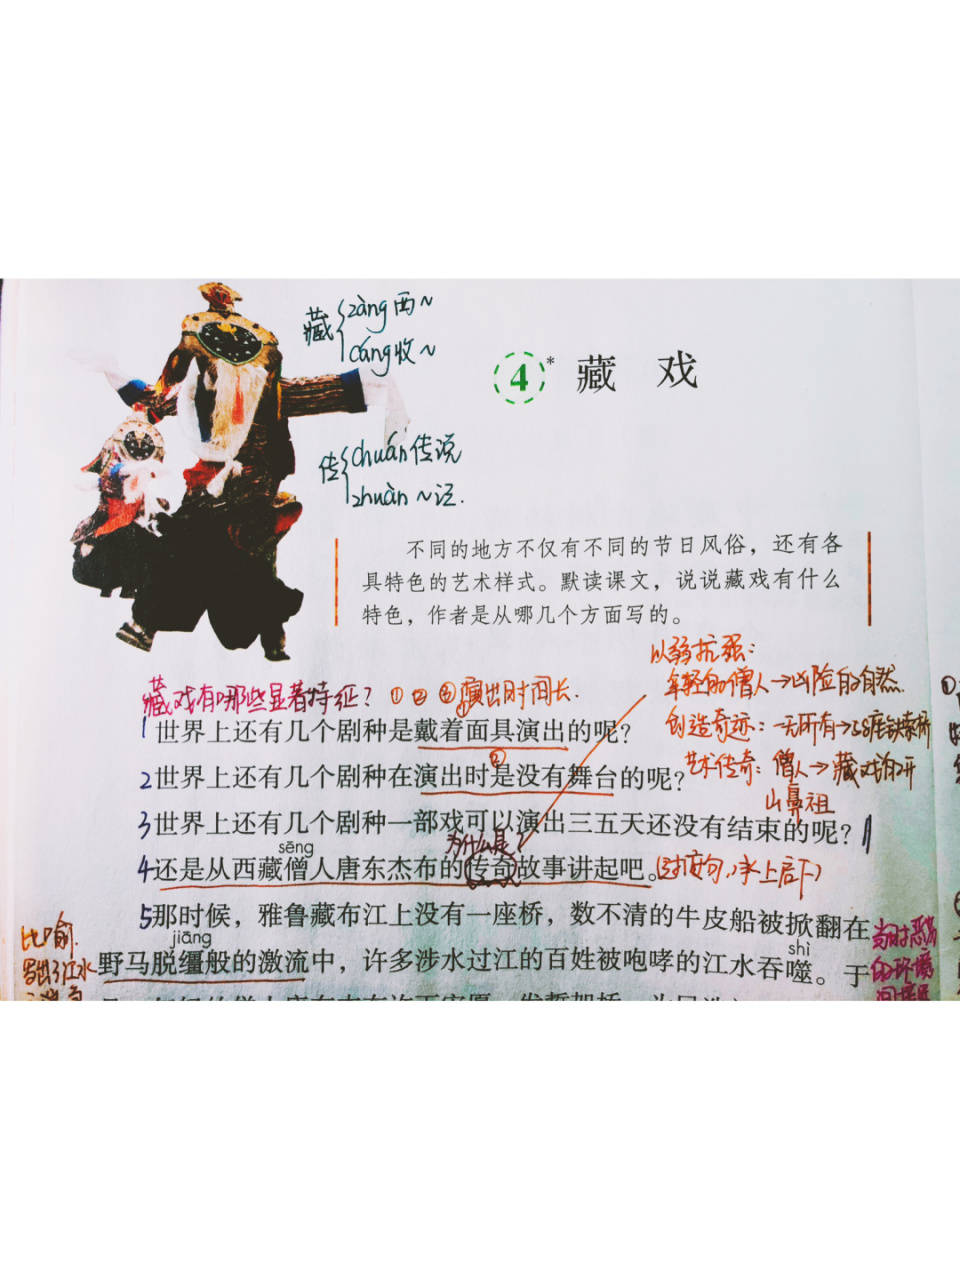 藏 zàng 西~
cáng 收~
4* 藏 戏
传 chuán 传说
zhuàn ~记.
不同的地方不仅有不同的节日风俗，还有各
具特色的艺术样式。默读课文，说说藏戏有什么
特色，作者是从哪几个方面写的。
以弱抗强:
年轻的僧人→凶险的自然.
创造奇迹: 一无所有→58座铁索桥
艺术传奇: 僧人→藏戏的开
山鼻祖
藏戏有哪些显著特征? ① ② ③演出时间长.
1 世界上还有几个剧种是戴着面具演出的呢?
②
2 世界上还有几个剧种在演出时是没有舞台的呢?
3 世界上还有几个剧种一部戏可以演出三五天还没有结束的呢?
为什么是
sēng
4 还是从西藏僧人唐东杰布的传奇故事讲起吧。(过渡句,承上启下)
5 那时候，雅鲁藏布江上没有一座桥，数不清的牛皮船被掀翻在
jiāng shì
野马脱缰般的激流中，许多涉水过江的百姓被咆哮的江水吞噬。于
比喻.
写出了江水
当时恶劣
的环境